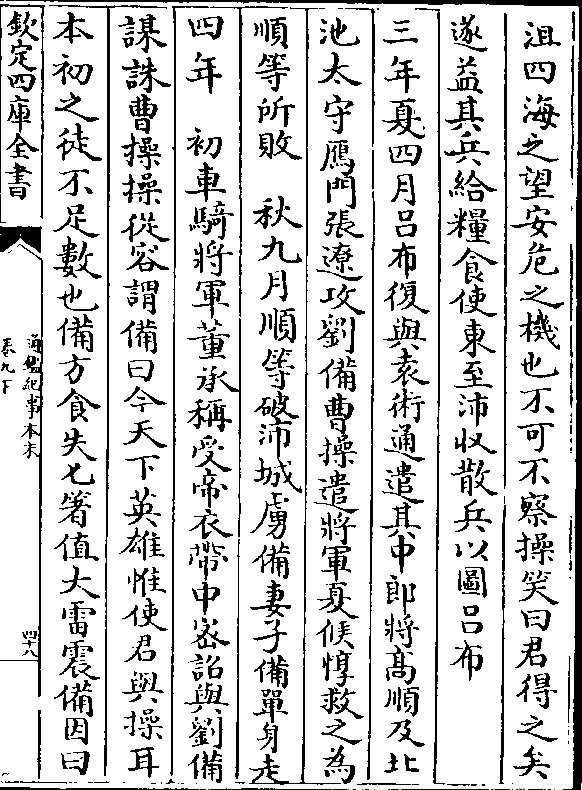 沮四海之望安危之機也不可不察操笑曰君得之矣
遂益其兵給糧食使東至沛收散兵以圖呂布
三年夏四月呂布復與袁術通遣其中郎將高順及北
池太守鴈門張遼攻劉備曹操遣將軍夏侯惇救之為
順等所敗　秋九月順等破沛城虜備妻子備單身走
四年　初車騎將軍董承稱受帝衣帶中密詔與劉備
謀誅曹操操從容謂備曰今天下英雄惟使君與操耳
本初之徒不足數也備方食失匕箸值大雷震備因曰
欽定四庫全書
通鑑紀事本末
卷九下
四十八